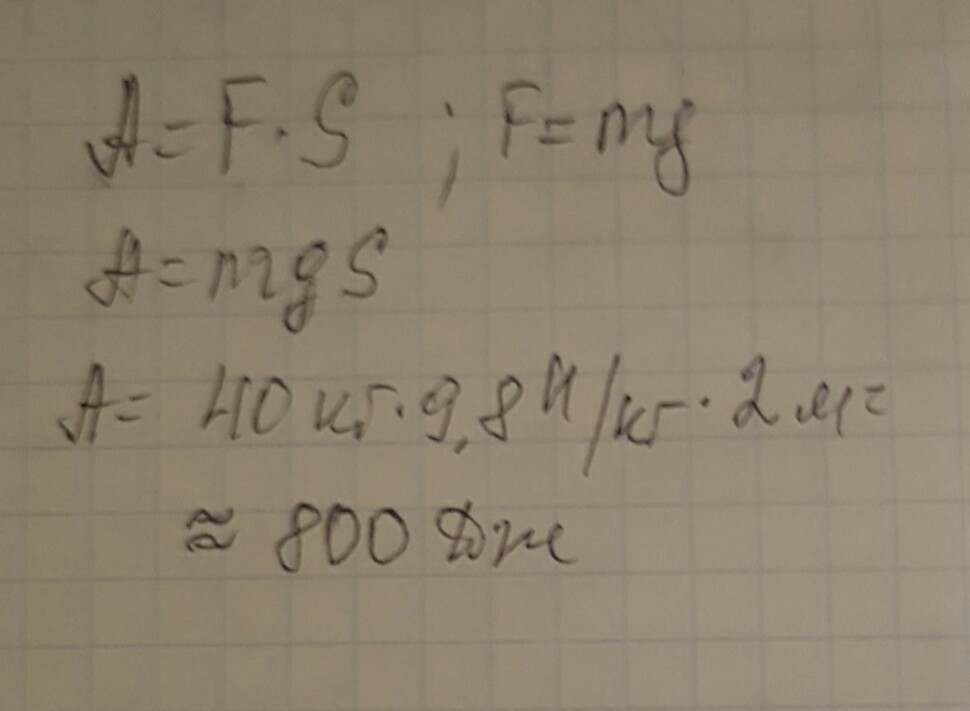 A = F · S ; F = mg
A = mgS
A = 40 кг · 9,8 Н/кг · 2 м =
≈ 800 Дж